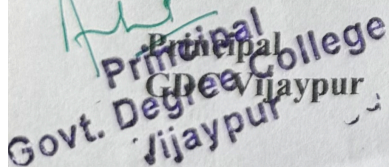 Principal
GDC Vijaypur
Principal
Govt. Degree College
Vijaypur